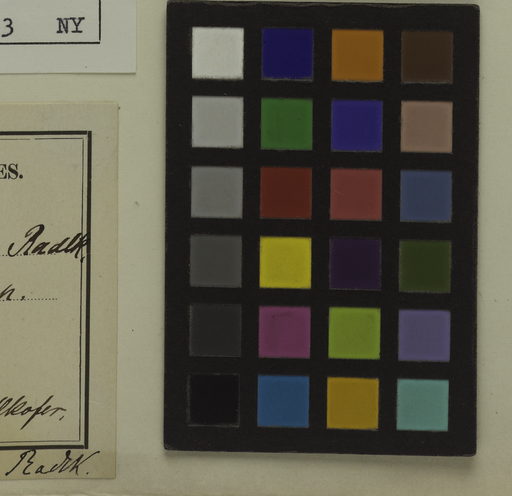 3 NY
ES.
Radlk
n.
lkofer.
Radlk.